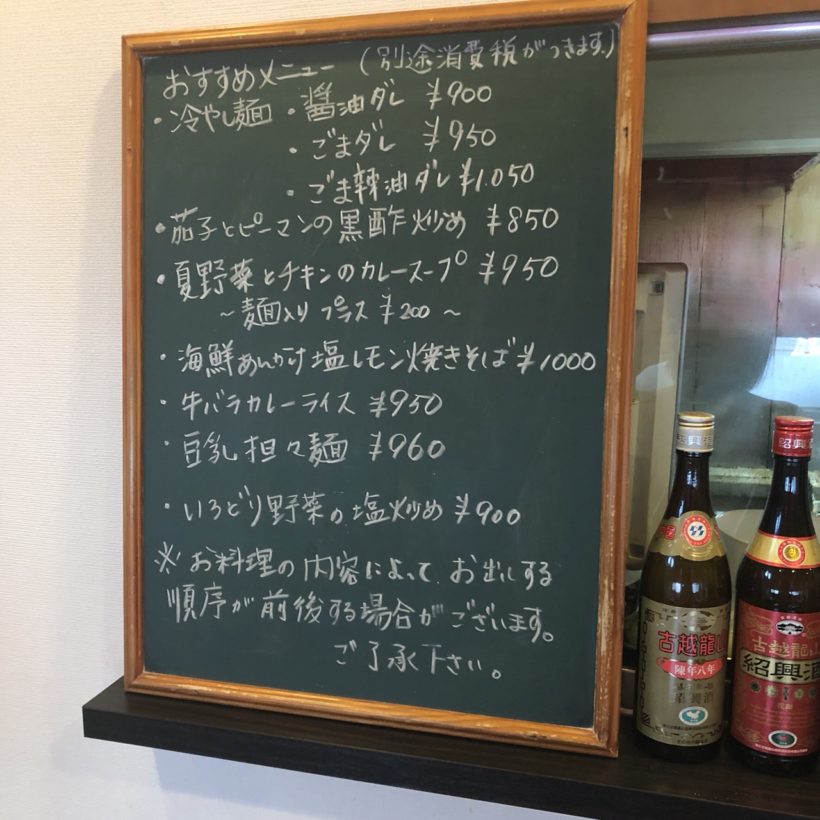 おすすめメニュー (別途消費税がつきます。)
・冷やし麺 ・醤油ダレ ¥900
・ごまダレ ¥950
・ごま辣油ダレ ¥1.050
・茄子とピーマンの黒酢炒め ¥850
・夏野菜とチキンのカレースープ ¥950
～麺入り プラス ¥200～
・海鮮あんかけ塩レモン焼きそば ¥1000
・牛バラカレーライス ¥950
・豆乳担々麺 ¥960
・いろどり野菜の塩炒め ¥900
※お料理の内容によって、お出しする
順序が前後する場合がございます。
ご了承下さい。
古越龍山
陳年八年
紹興酒
紹興
古越龍山
紹興酒